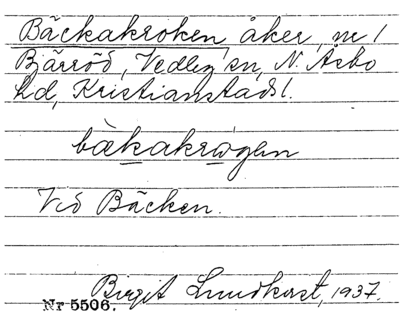 Bäckakroken åker, nr 1
Bärröd, Vedby sn, N. Åsbo
hd, Kristianstads l.
bàkakrẁogen
Vid Bäcken.
Birgit Lundkvist, 1937.
Nr 5506.